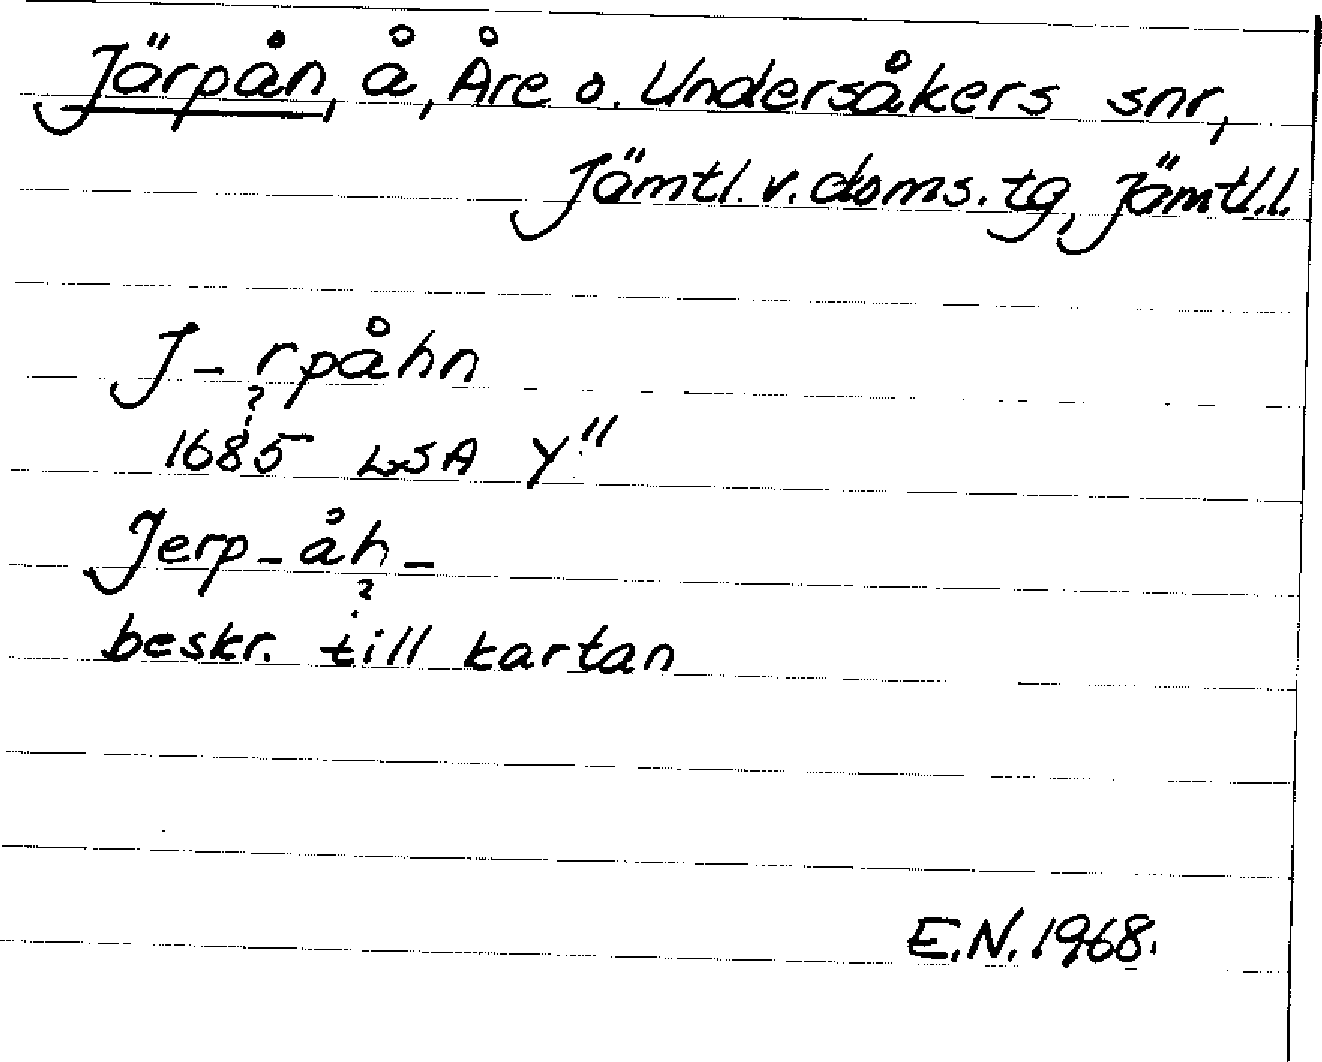 Järpån, å, Åre o. Undersåkers snr,
Jämtl. v. doms. tg, Jämtl.l.
J-rpåhn
?
1685 LSA Y"
Jerp-åh-
?
beskr. till kartan
E.N. 1968.